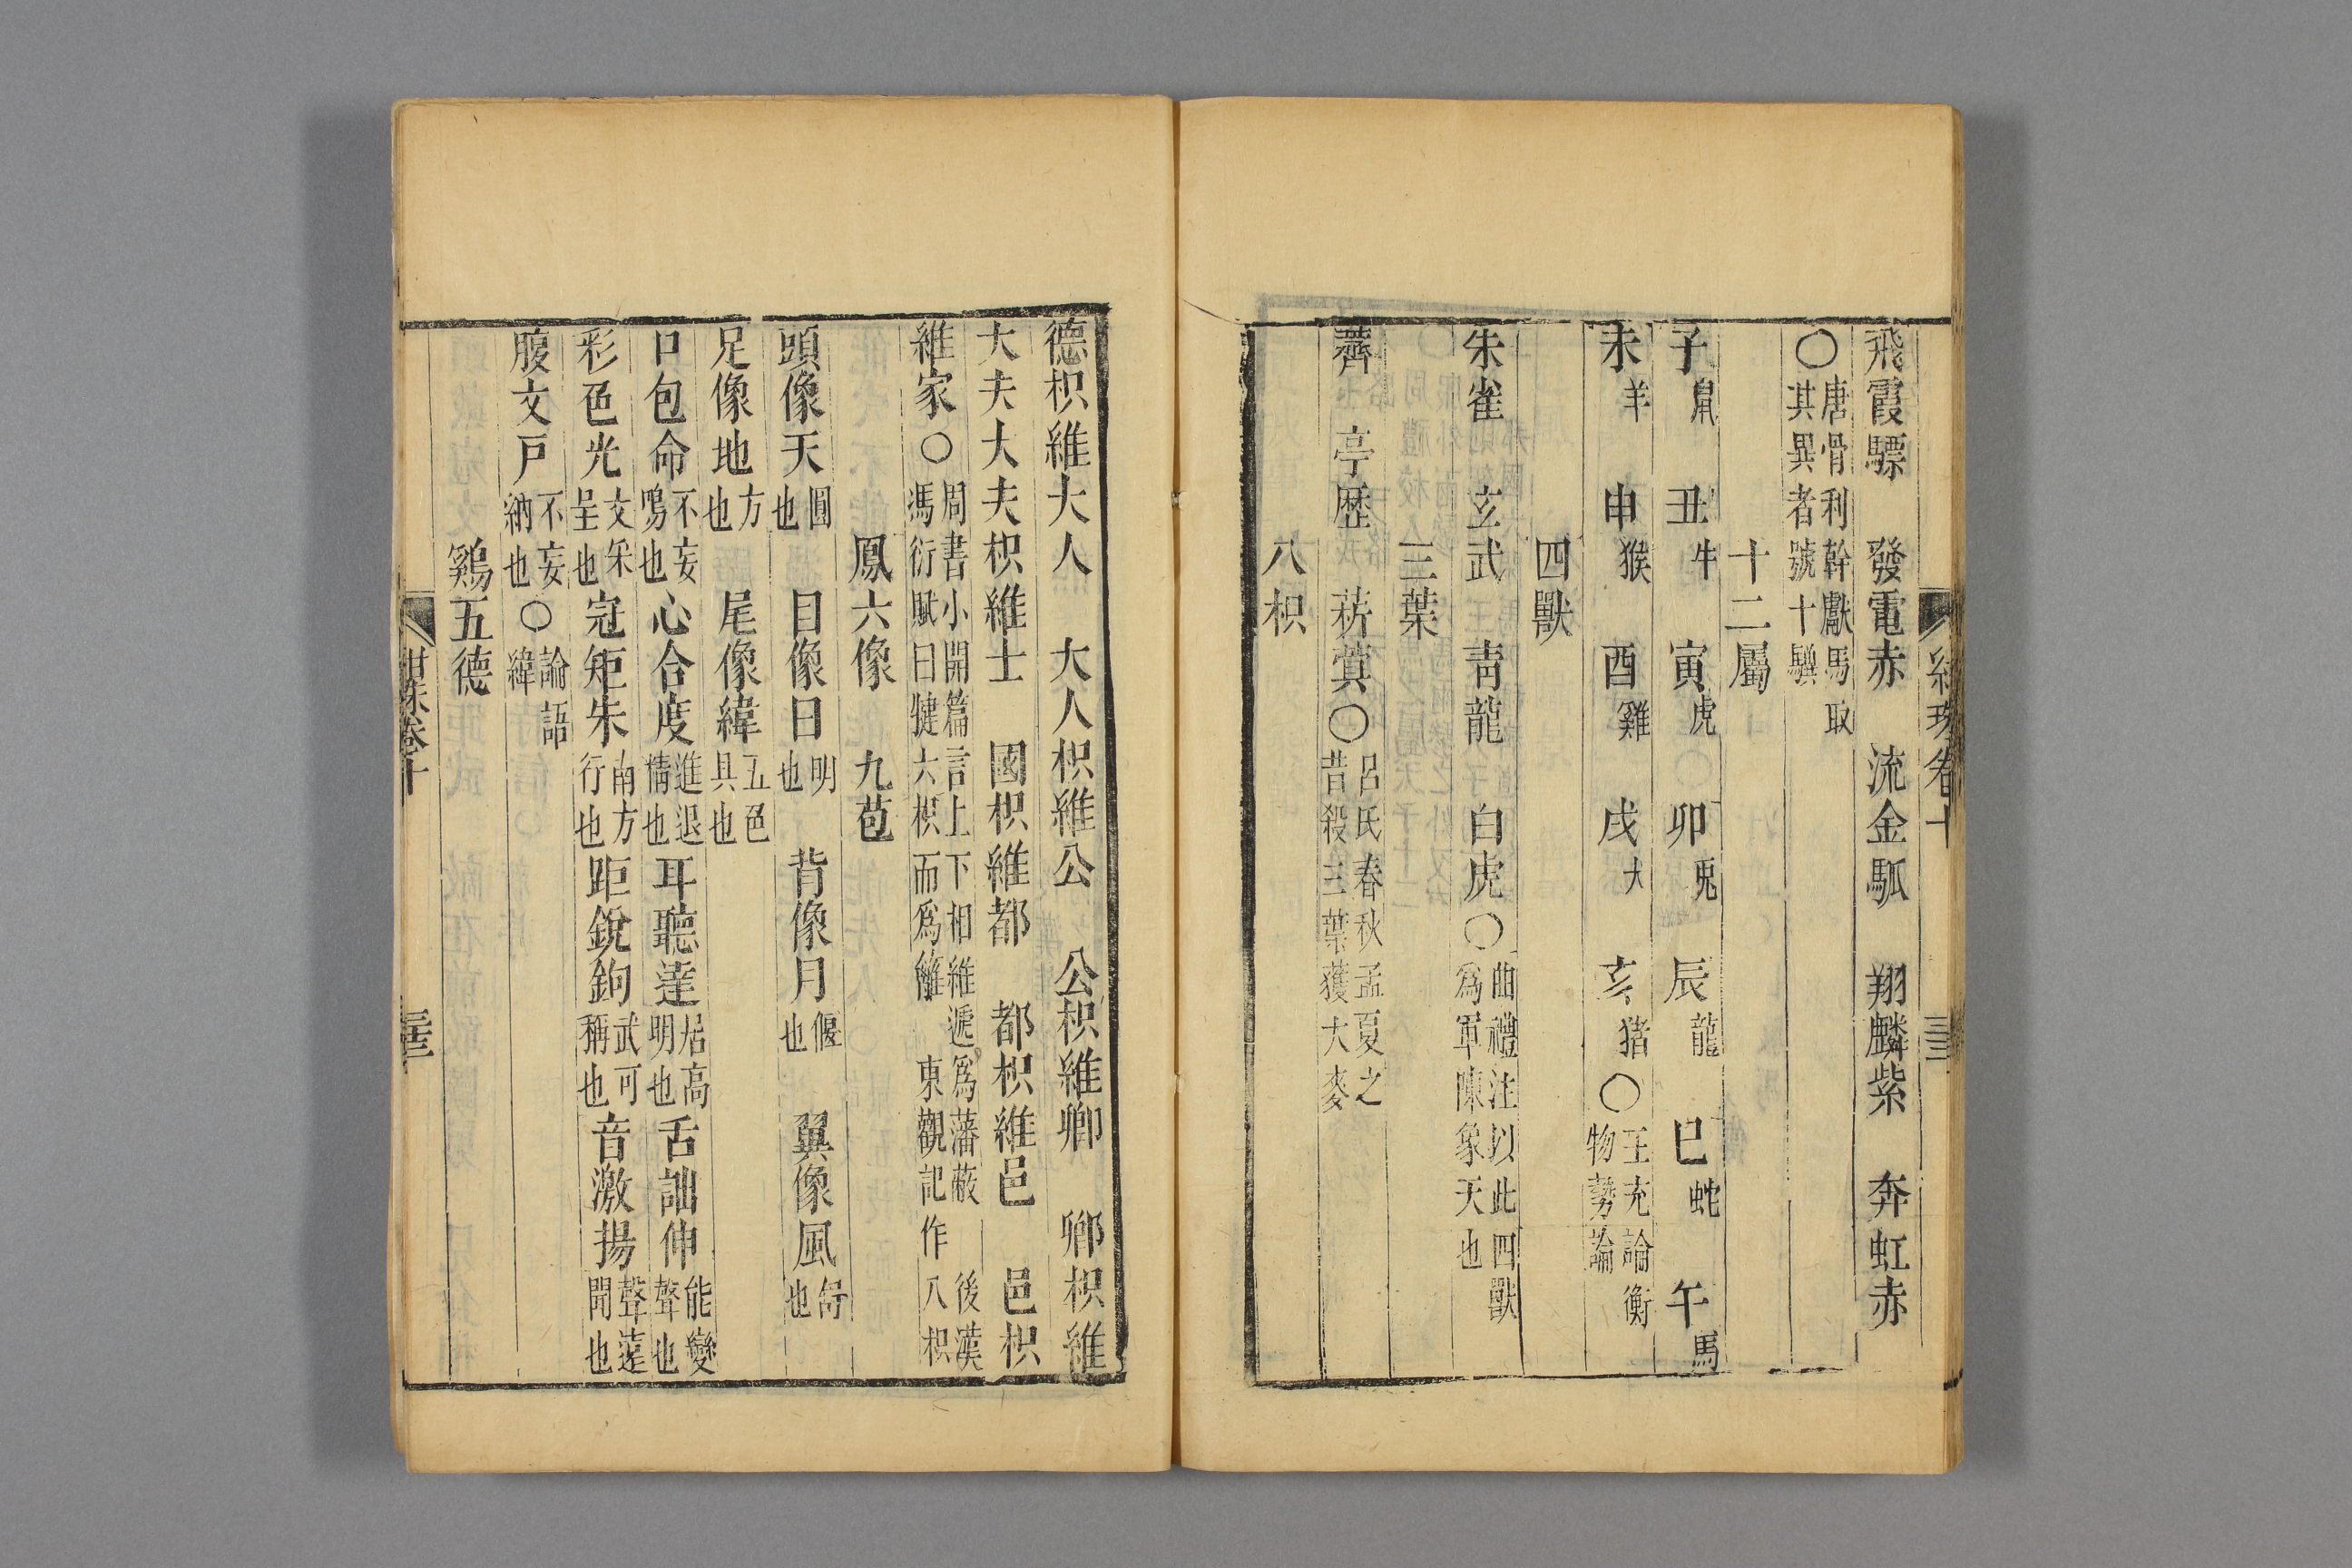 飛霞驃　發電赤　流金䯄　翔麟紫　奔虹赤
○唐骨利幹獻馬取其異者號十驥
十二屬
子鼠　丑牛　寅虎　卯兎　辰龍　巳蛇　午馬
未羊　申猴　酉雞　戌犬　亥猪○王充論衡物勢論
四獸
朱雀　玄武　靑龍　白虎○曲禮注以此四獸為軍陳象天也
三葉
薺　亭歷　菥蓂○呂氏春秋孟夏之昔殺三葉獲大麥
八枳
德枳維大人　大人枳維公　公枳維卿　卿枳維
大夫大夫枳維士　國枳維都　都枳維邑　邑枳
維家○周書小開篇言上下相維遞爲藩蔽　後漢馮衍賦曰揵六枳而爲籬　東觀記作八枳
鳳六像　九苞
頭像天圓也　目像日明也　背像月偃也　翼像風舒也
足像地方也　尾像緯五色具也
口包命不妄鳴也心合度進退情也耳聽達居高明也舌詘伸能變聲也
彩色光文采呈也冠矩朱南方行也距銳鉤武可稱也音激揚聲遠聞也
腹文戸不妄納也○論語緯
鷄五德
卷十